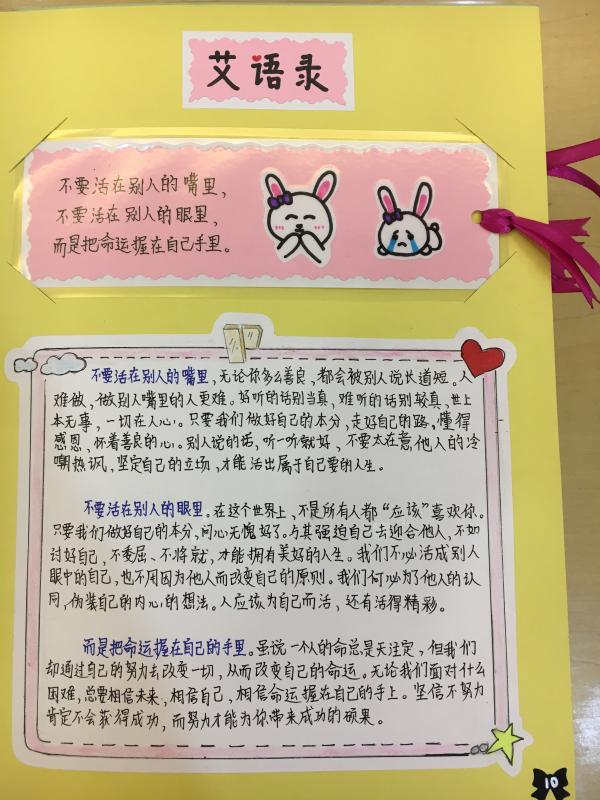 艾语录
不要活在别人的嘴里，
不要活在别人的眼里，
而是把命运握在自己手里。
不要活在别人的嘴里，无论你多么善良，都会被别人说长道短。人
难做，做别人嘴里的人更难。好听的话别当真，难听的话别较真，世上
本无事，一切在人心。只要我们做好自己的本分，走好自己的路，懂得
感恩，怀着善良的心。别人说的话，听一听就好，不要太在意他人的冷
嘲热讽，坚定自己的立场，才能活出属于自己要的人生。
不要活在别人的眼里。在这个世界上，不是所有人都“应该”喜欢你。
只要我们做好自己的本分，问心无愧好了。与其强迫自己去迎合他人，不如
讨好自己，不委屈、不将就，才能拥有美好的人生。我们不必活成别人
眼中的自己，也不用因为他人而改变自己的原则。我们何必为了他人的认
同，伪装自己的内心的想法。人应该为自己而活，还有活得精彩。
而是把命运握在自己的手里。虽说一个人的命总是天注定，但我们
却通过自己的努力去改变一切，从而改变自己的命运。无论我们面对什么
困难，总要相信未来，相信自己，相信命运握在自己的手上。坚信不努力
肯定不会获得成功，而努力才能为你带来成功的硕果。
10